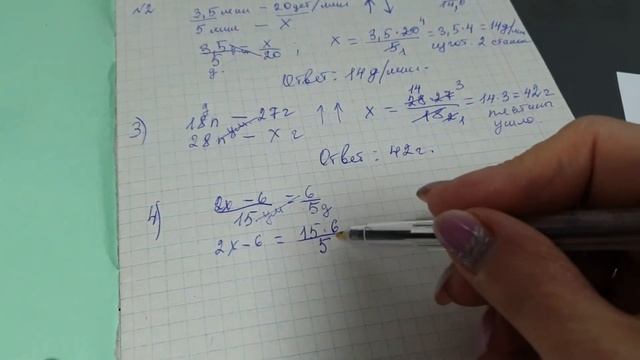 №2
3,5 мин – 20 дет/мин ↑ ↓
5 мин – x
3,5/5 = x/20 ; x = 3,5·20⁴/5₁ = 3,5·4 = 14 д/мин
изгот. 2 станок
Ответ: 14 д/мин.
3) 18 п – 27 г ↑↑ x = 28·27/18 = 14·3 = 42 г
28 п – x г
ушло
Ответ: 42 г.
4) 2x – 6/15 = 6/5
2x – 6 = 15·6/5